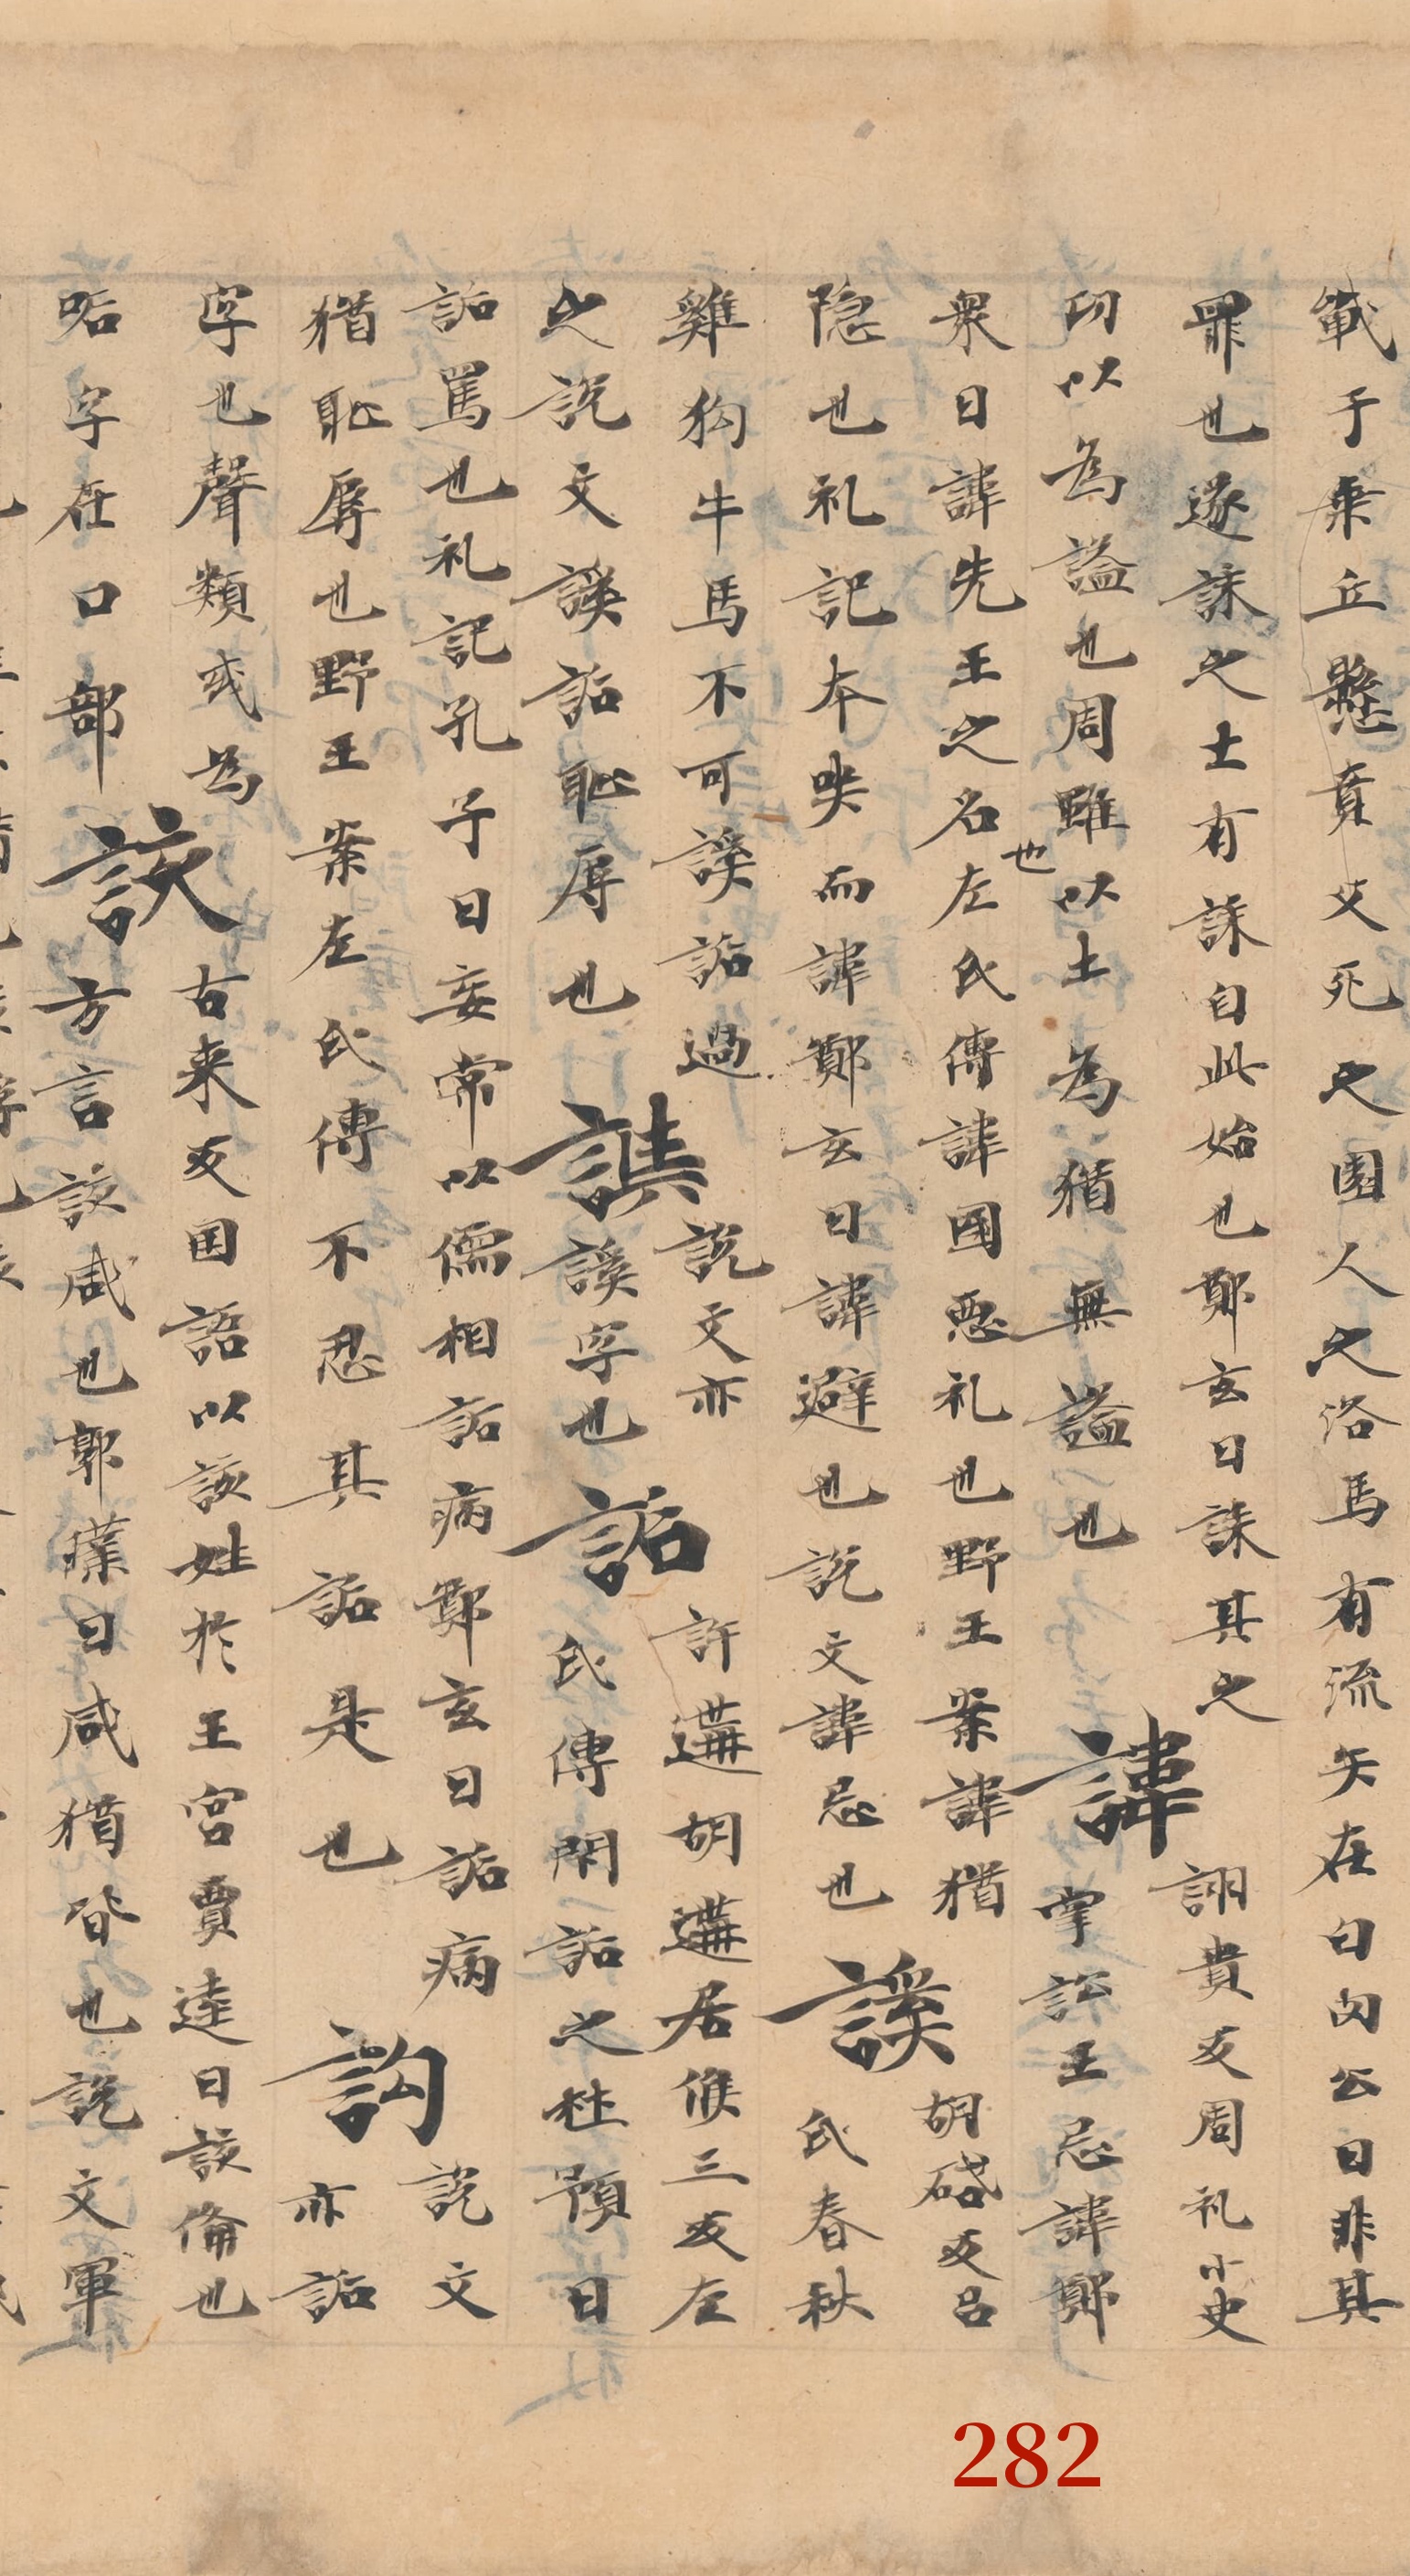 戰于乗丘懸賁父死之圉人之浴馬有流矢在白肉公曰非其
罪也遂誄之士有誄自此始也鄭玄曰誄其之
功以為謚也周雖以士為猶無謚也
諱
詡貴反周礼小史
掌詔王忌諱鄭
衆曰諱先王之名也左氏傳諱國惡礼也野王案諱猶
隠也礼記卒哭而諱鄭玄曰諱避也說文諱忌也
謑
胡啓反呂
氏春秋
雞狗牛馬不可謑詬過
之說文謑詬恥辱也
說文亦
謑字也
詬
許遘胡遘居候三反左
氏傳閇詬之杜預曰
詬罵也礼記孔子曰妄常以儒相詬病鄭玄曰詬病
猶恥辱也野王案左氏傳不忍其詬是也
訽
說文
亦詬
字也聲類或為
㖃字在口部
該
古来反国語以該姓於王宮賈逵曰該備也
方言該咸也郭璞曰咸猶皆也說文軍
282